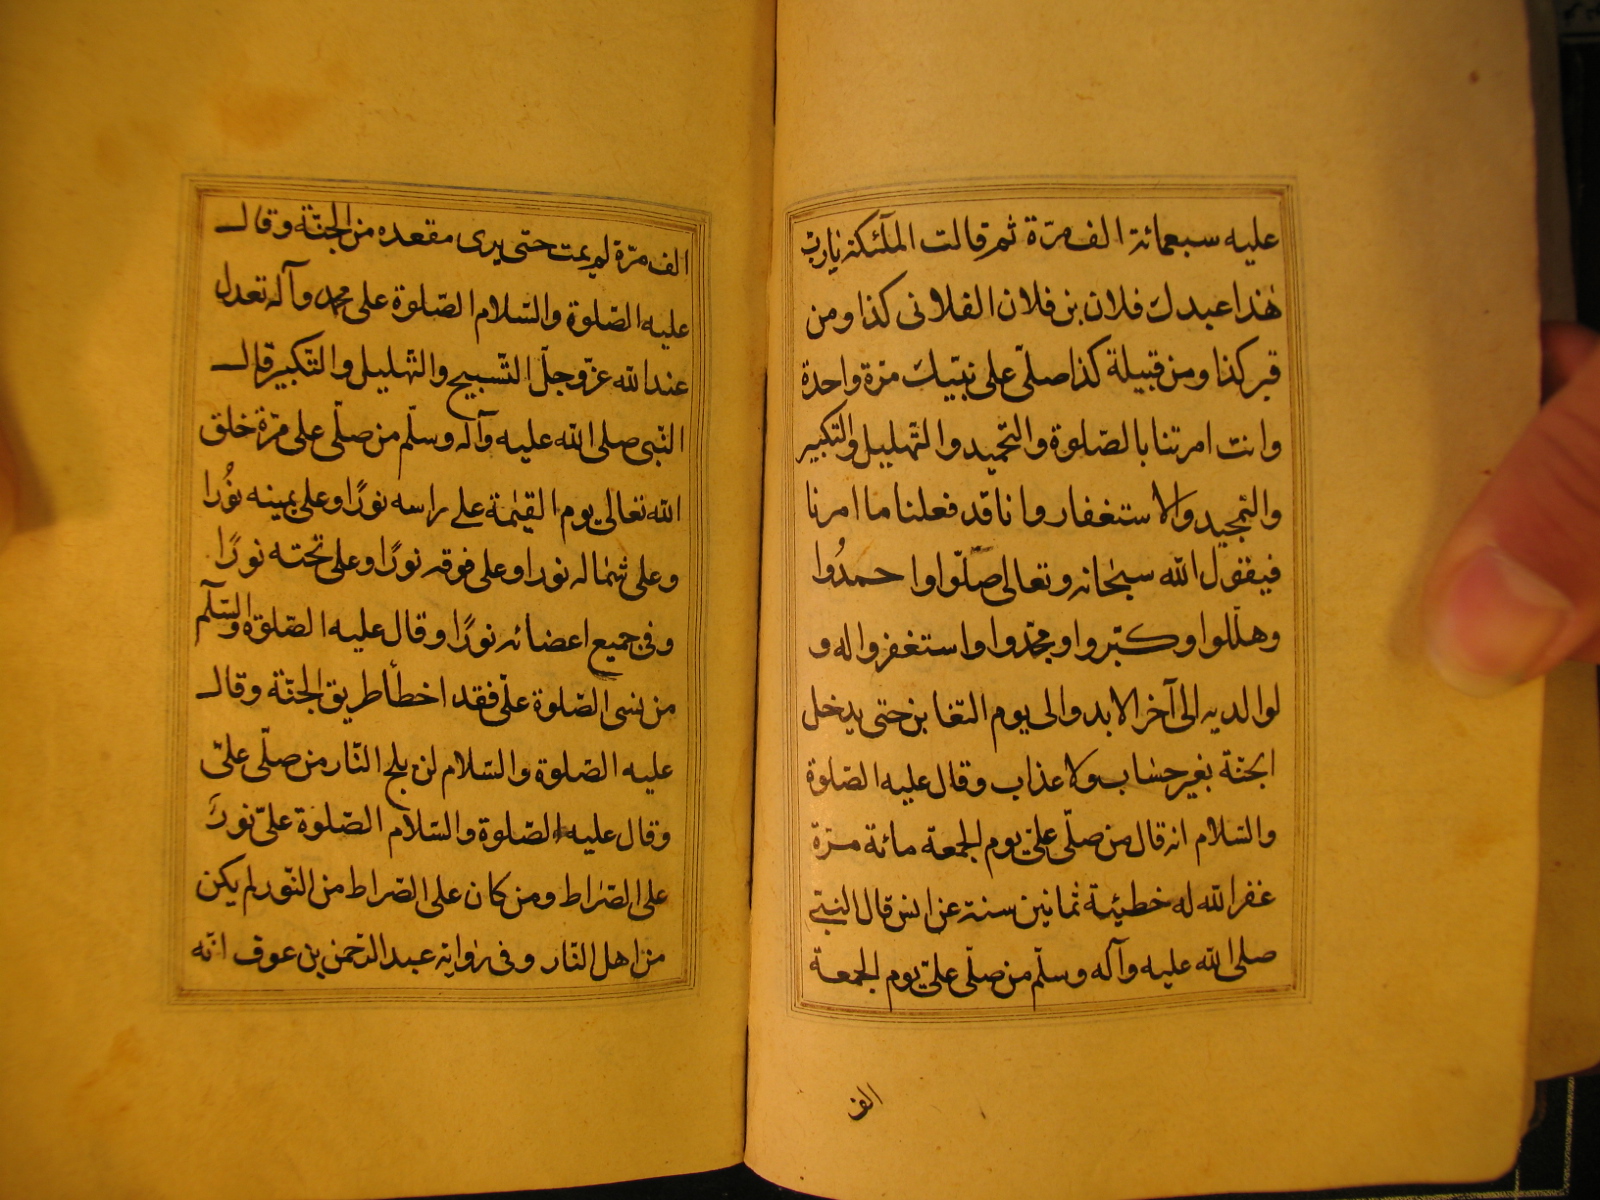 عليه سبعمائة الف مرّة ثم قالت الملٓئكة يا ربّ
هٰذا عبدك فلان بن فلان الفلانى كذا ومن
قبر كذا ومن قبيلة كذا صلّى على نبيّك مرّة واحدة
وانت امرتنا بالصّلوة والتحميد والتّهليل والتّكبير
والتمجيد والاستغفار وانا قد فعلنا ما امرنا
فيقول الله سبحانه وتعالى صلّوا واحمدُوا
وهلّلوا وكبّروا ومجّدوا واستغفروا له و
لوالديه الى آخر الابد والى يوم التغابن حتى يدخل
الجنّة بغير حساب ولا عذاب وقال عليه الصّلوة
والسّلام انه قال من صلّى علىّ يوم الجمعة مائة مرّة
غفر الله له خطيئة ثمانين سنة عن انس قال النبىّ
صلى الله عليه وآله وسلّم من صلّى علىّ يوم الجمعة
الف
الف مرّة لم يمت حتى يرى مقعده من الجنّة وقال
عليه الصّلوة والسّلام الصّلوة على محمد وآله تعدل
عند الله عزّ وجلّ التّسبيح والتّهليل والتّكبير قال
النّبى صلى الله عليه وآله وسلّم من صلّى على مرّة خلق
الله تعالى يوم القيٰمة على راسه نورًا وعلى يمينه نُورا
وعلى شماله نورا وعلى فوقه نورًا وعلى تحته نورًا
وفى جميع اعضائه نورًا وقال عليه الصّلوة والسّلٓم
من نسى الصّلوة علىّ فقد اخطأ طريق الجنّة وقال
عليه الصّلوة والسّلام لن يلج النّار من صلّى علىّ
وقال عليه الصّلوة والسّلام الصّلوة علىّ نورٌ
على الصّراط ومن كان على الصّراط من النّور لم يكن
من اهل النّار وفى رواية عبد الرّحمن بن عوف انّه